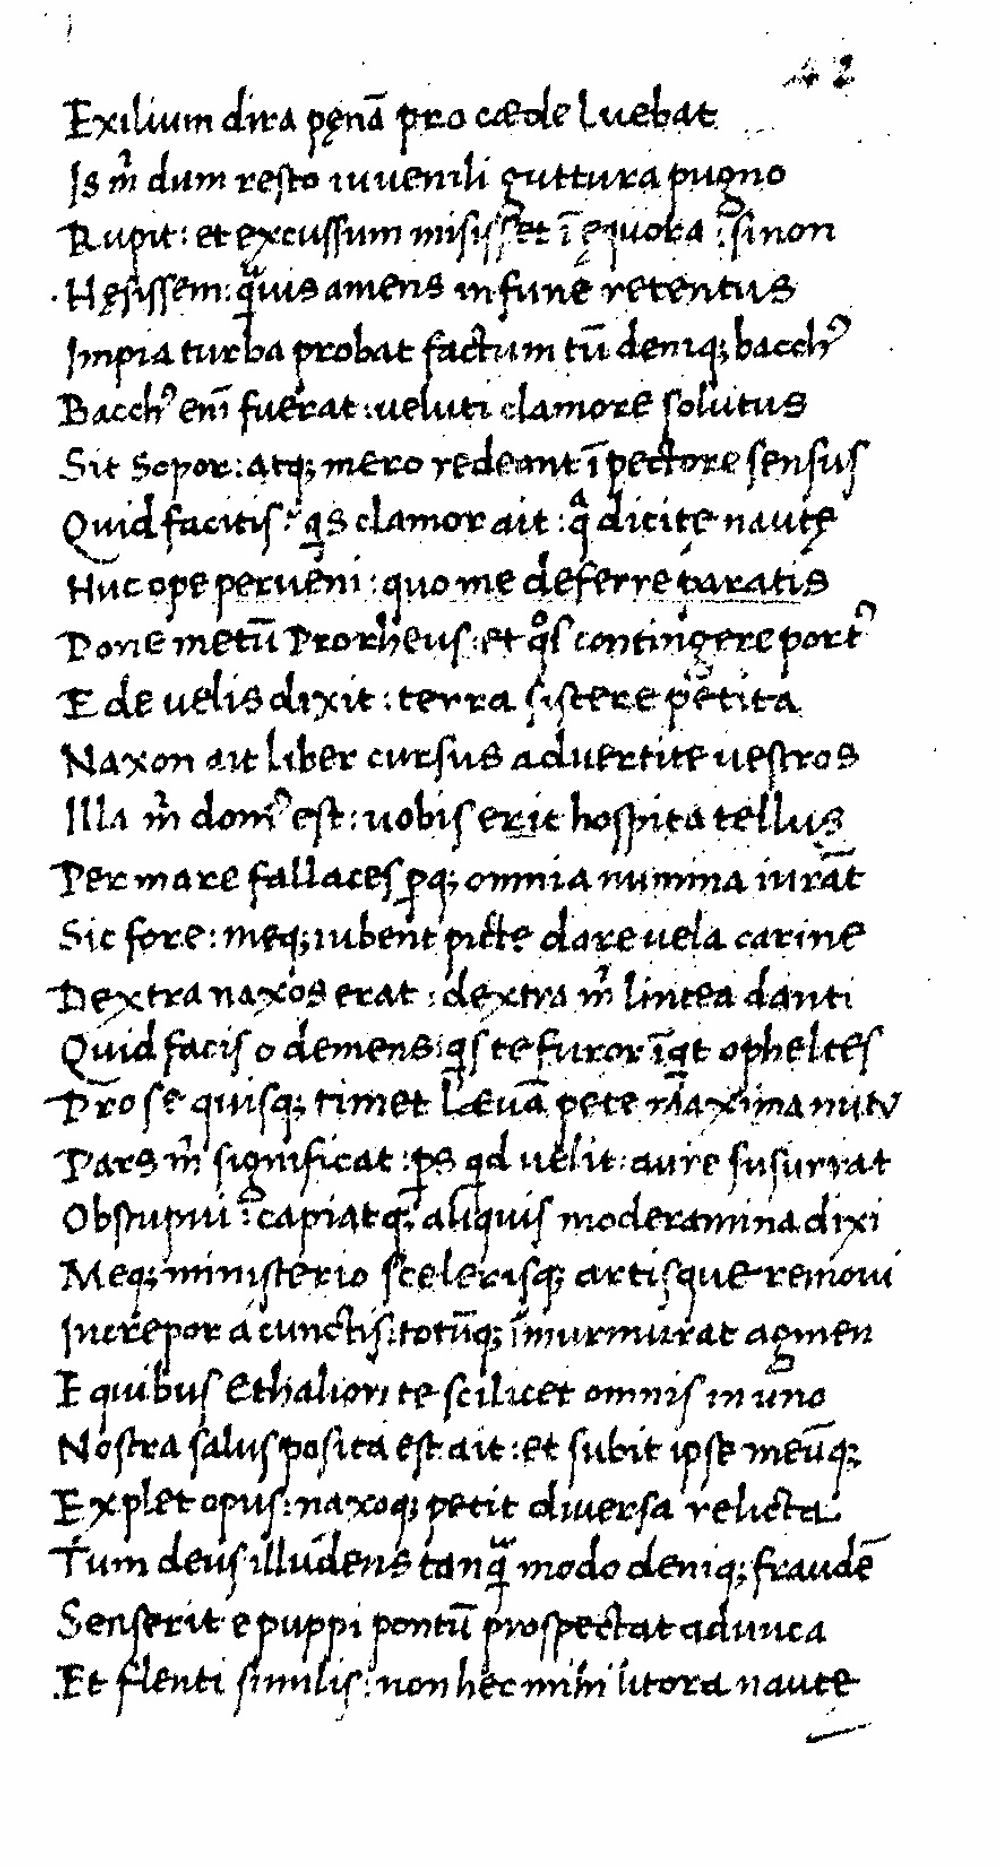 42
Exilium dira pęnā pro cæde luebat
Is m̃ dum resto iuuenili guttura pugno
Rupit: et excussum misisset ī ęquora : si non
Hęsissem: q̃uis amens in fune retentus
Impia turba probat factum tū deniq; bacchꝰ
Bacchꝰ enī fuerat: ueluti clamore solutus
Sit sopor: atq; mero redeant ī pectore sensus
Quid facitis? qs clamor ait: qᵃ dicite nautę
Huc ope perueni: quo me deferre paratis
Pone metū Prorheus: et qᵒs contingere portꝰ
E de uelis dixit: terra sistere petita
Naxon ait liber cursus aduertite uestros
Illa m̃ domꝰ est: uobis erit hospita tellus
Per mare fallaces ꝑq; omnia numina iurāt
Sic fore: meq; iubent picte dare uela carine
Dextra naxos erat: dextra m̃ lintea danti
Quid facis o demens: qs te furor īqt opheltes
Pro se quisq; timet Læuā pete maxima nutu
Pars m̃ significat: ꝑs qd uelit: aure susurrat
Obstupui: capiatq; aliquis moderamina dixi
Meq; ministerio scelerisq; artisque remoui
Increpor a cunctis: totūq; īmurmurat agmen
E quibus Ethalion te scilicet omnis in uno
Nostra salus posita est ait: et subit ipse meūq;
Explet opus: naxoq; petit diuersa relicta
Tum deus illudens tanq̃ modo deniq; fraudē
Senserit e puppi pontū prospectat adunca
Et flenti similis: non hec mihi litora naute